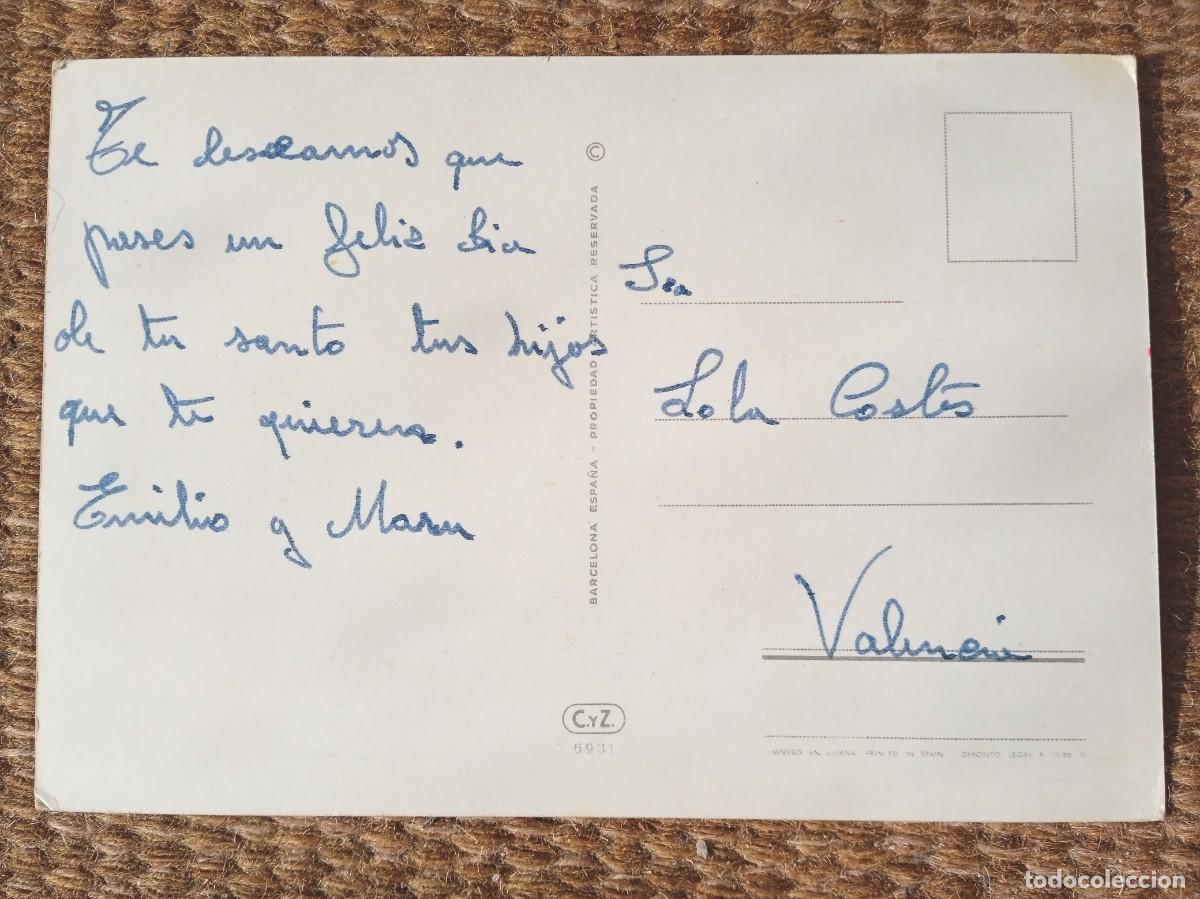 Te deseamos que
pases un feliz dia
de tu santo tus hijos
que te quieren.
Emilio y Maru
©
BARCELONA ESPAÑA - PROPIEDAD ARTISTICA RESERVADA
Sra
Lola Costes
Valencia
C.Y Z.
6931
IMPRESO EN ESPAÑA PRINTED IN SPAIN DEPOSITO LEGAL B.
todocoleccion